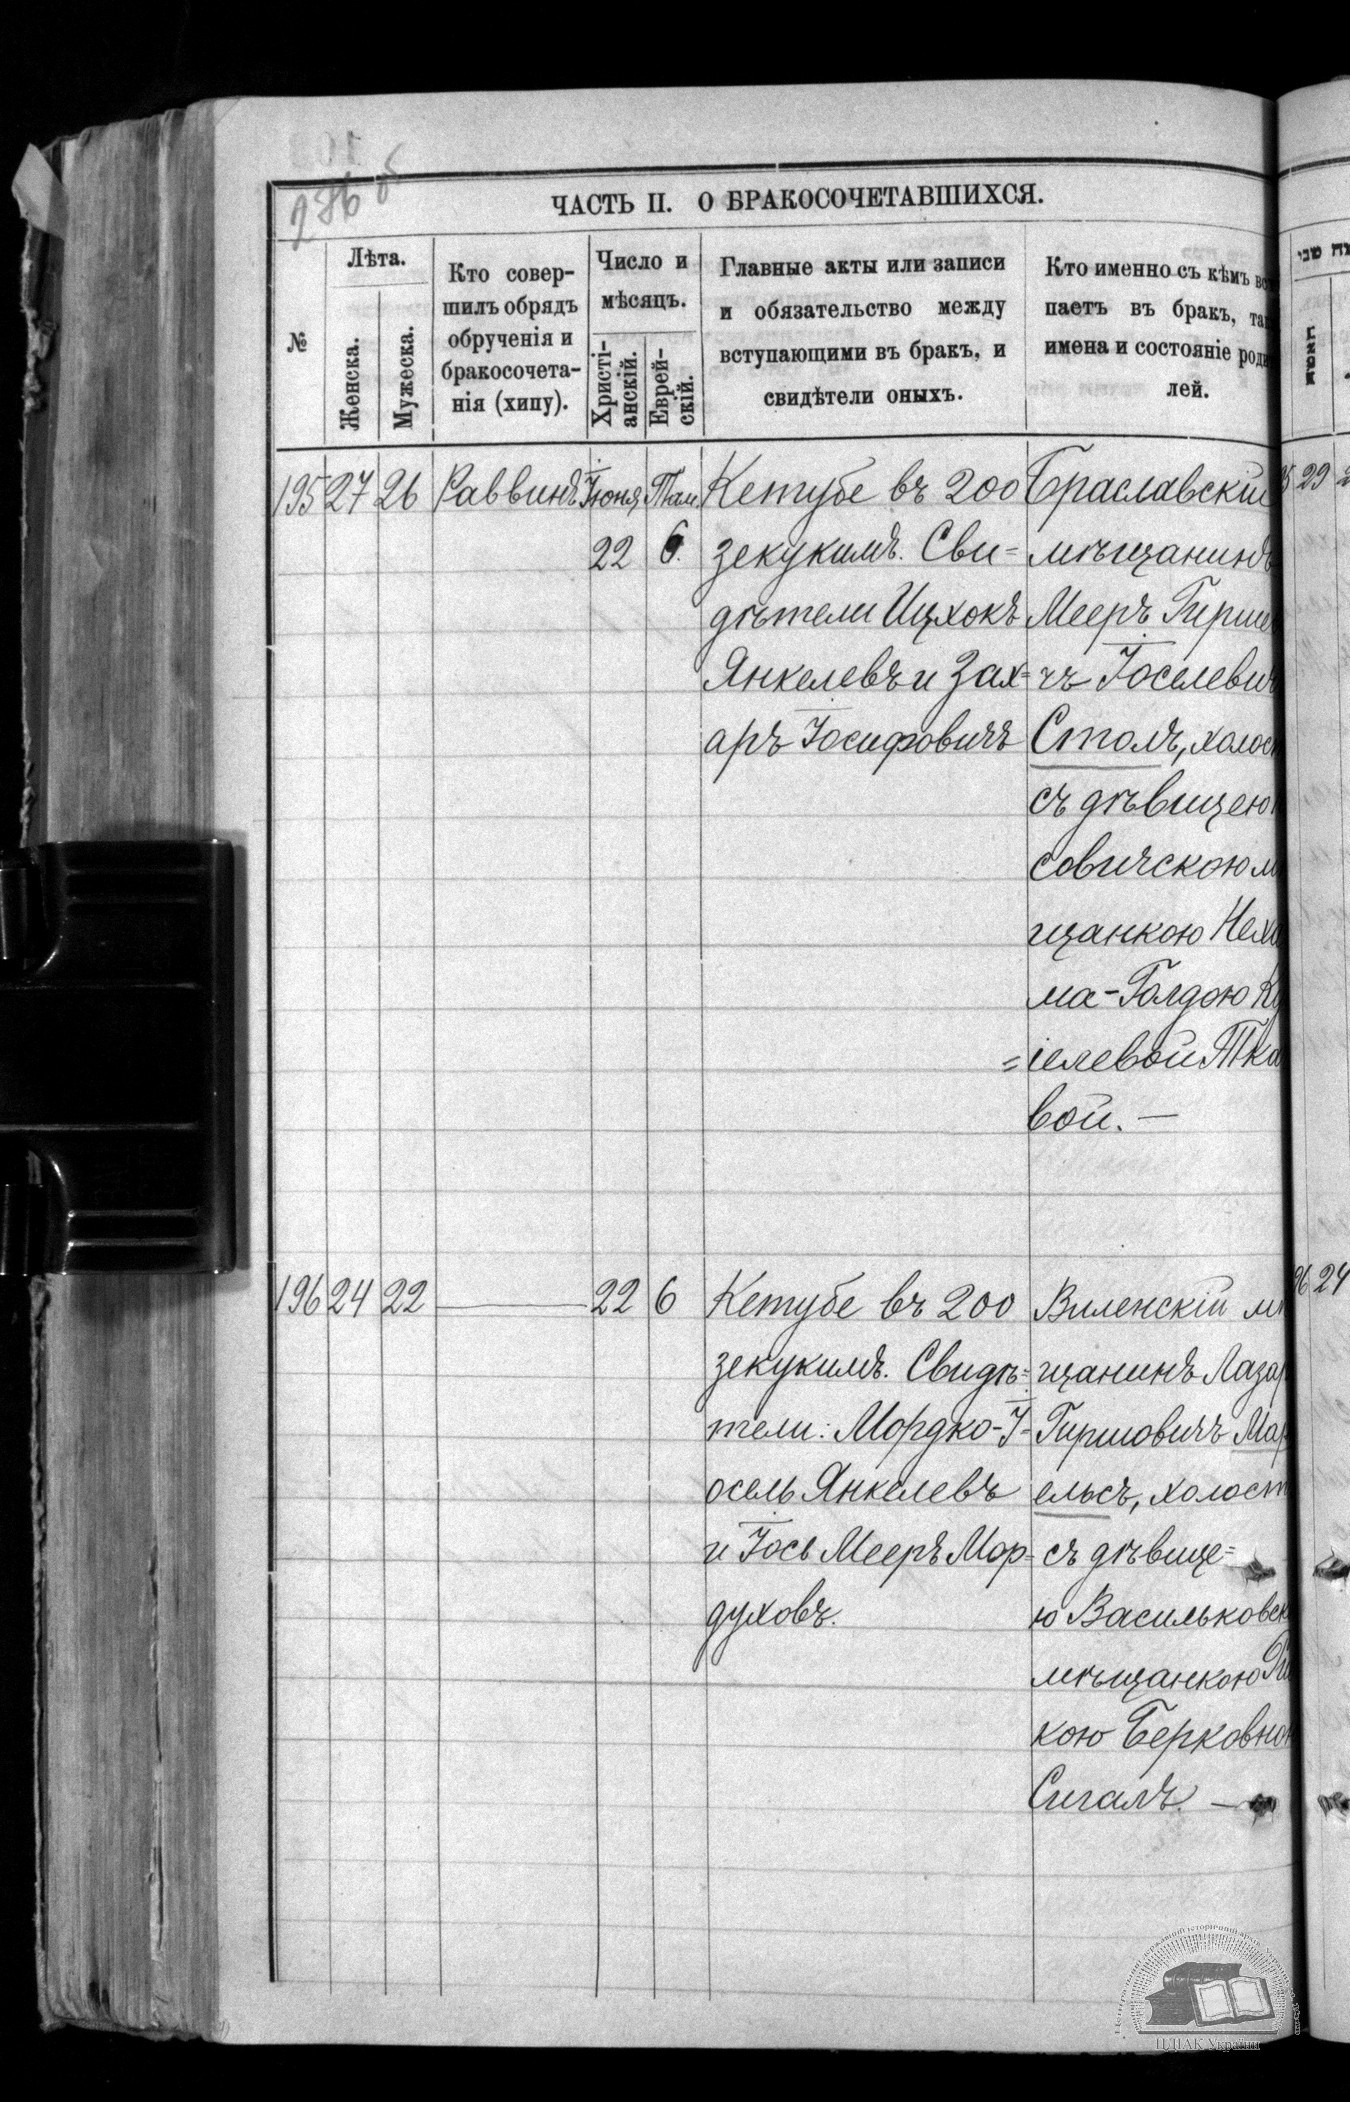 286 об
ЧАСТЬ II. О БРАКОСОЧЕТАВШИХСЯ.
№
Лѣта.
Женска.
Мужеска.
Кто совер-
шилъ обрядъ
обрученія и
бракосочета-
нія (хипу).
Число и
мѣсяцъ.
Христі-
анскій.
Еврей-
скій.
Главные акты или записи
и обязательство между
вступающими въ бракъ, и
свидѣтели оныхъ.
Кто именно съ кѣмъ вс
паетъ въ бракъ, та
имена и состояніе роди
лей.
195 27 26 Раввинъ Іюня Там.
22 6.
Кетубе въ 200
зекукимъ. Сви=
дѣтели Ицхокъ
Янкелевъ и Зах=
аръ Іосифовичъ
Браславскій
мѣщанинъ
Мееръ Гирше
чъ Іоселевич
Столъ, холост
съ дѣвицею
совичскою м
щанкою Неха
ма-Голдою К
=іелевой Тка
вой. —
196 24 22 — 22 6
Кетубе въ 200
зекукимъ. Свидѣ=
тели: Мордко-І=
осель Янкелевъ
и Іось Мееръ Мор=
духовъ.
Виленскій мѣ
щанинъ Лазар
Гиршовичъ Мар
ельсъ, холост
съ дѣвице=
ю Васильковск
мѣщанкою
кою Берковно
Сигалъ. —
29
24
ЦДІАК України